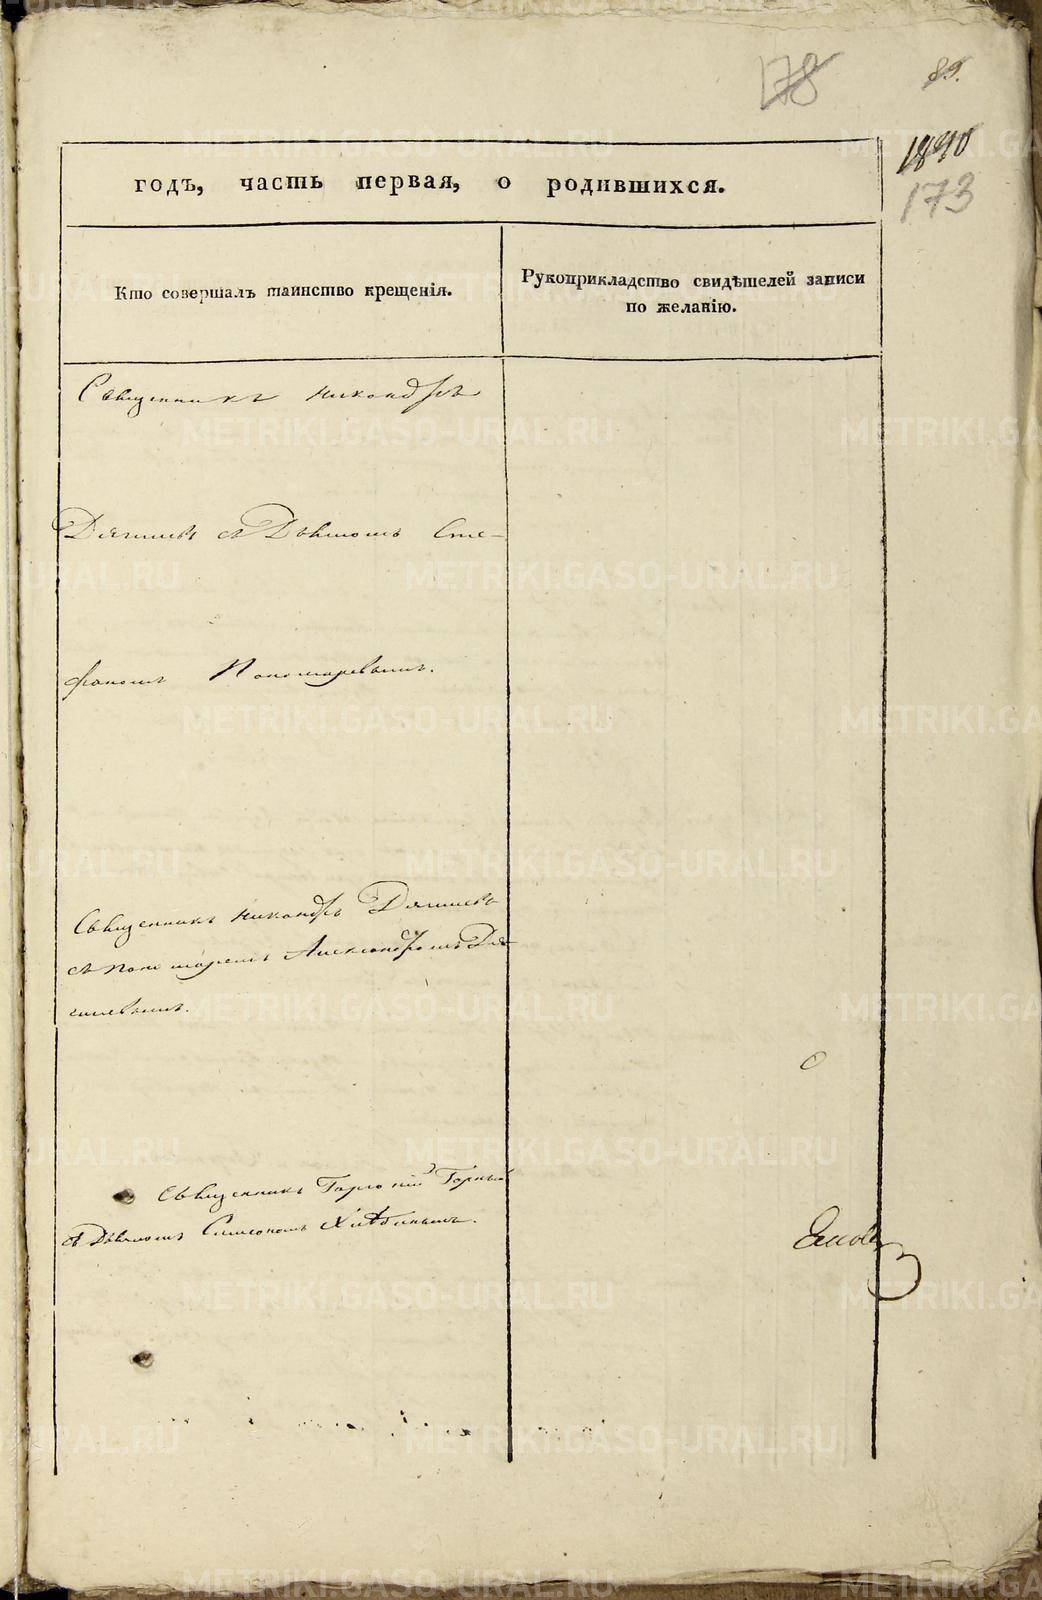 178
89.
1840
173
годъ, часть первая, о родившихся.
Кто совершалъ таинство крещенія.
Рукоприкладство свидѣтелей записи
по желанію.
Священникъ Никандръ
съ Дьякономъ Сте-
фаномъ Пономаревымъ.
Священникъ Никандръ
съ пономаремъ Александромъ
Священникъ Горный
съ Дьякономъ Симеономъ Хлѣбинымъ.
METRIKI.GASO-URAL.RU